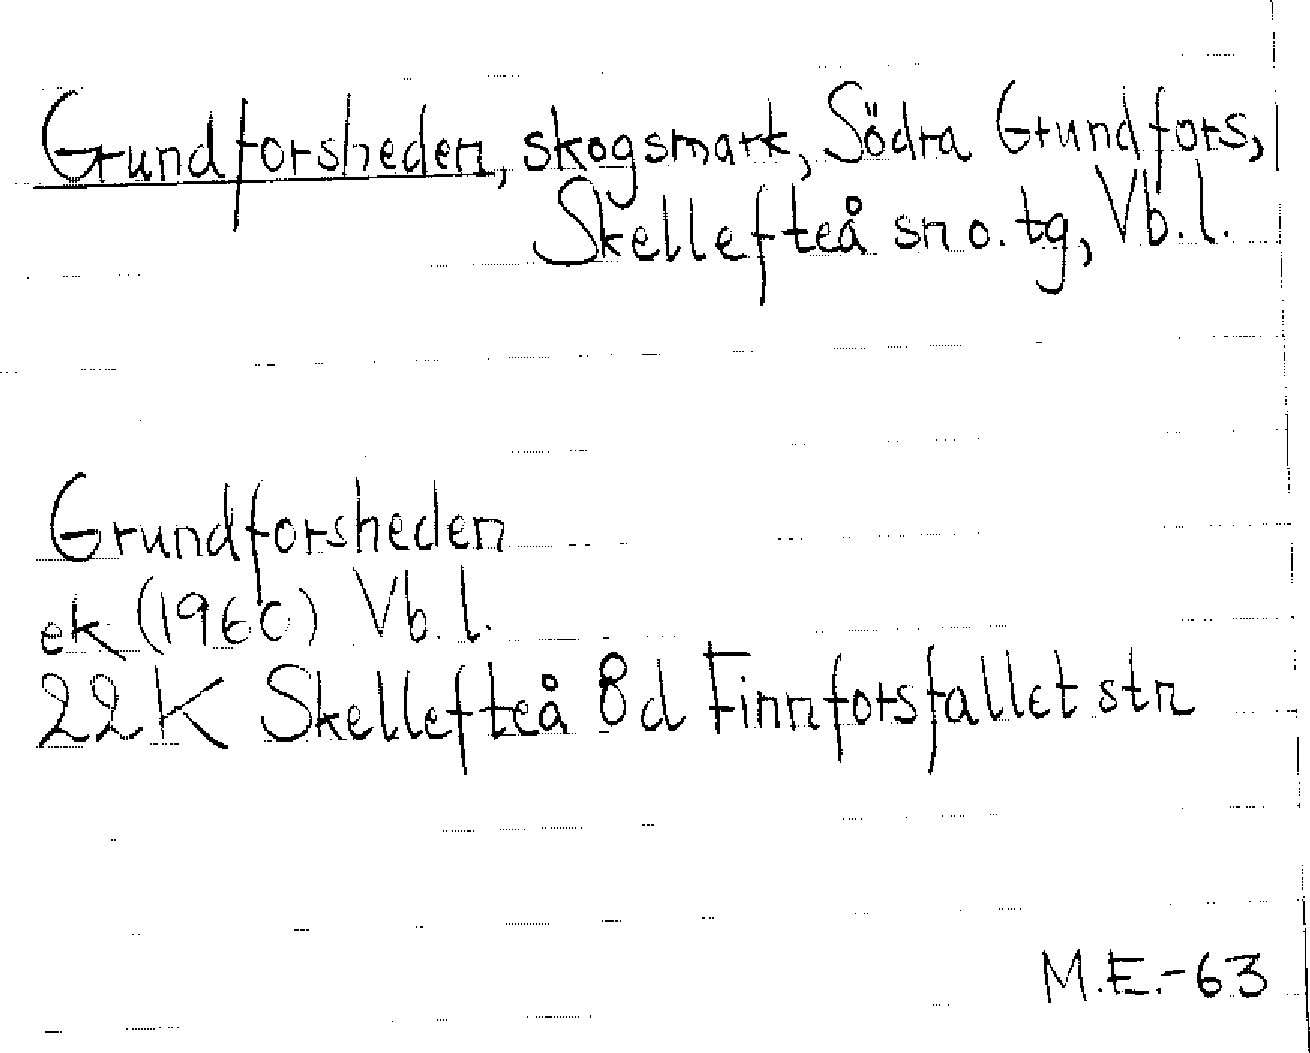 Grundforsheden, skogsmark, Södra Grundfors,
Skellefteå sn o. tg, Vb. l.
Grundforsheden
ek (1960) Vb. l.
22K Skellefteå 8d Finnforsfallet stn
M.E.-63